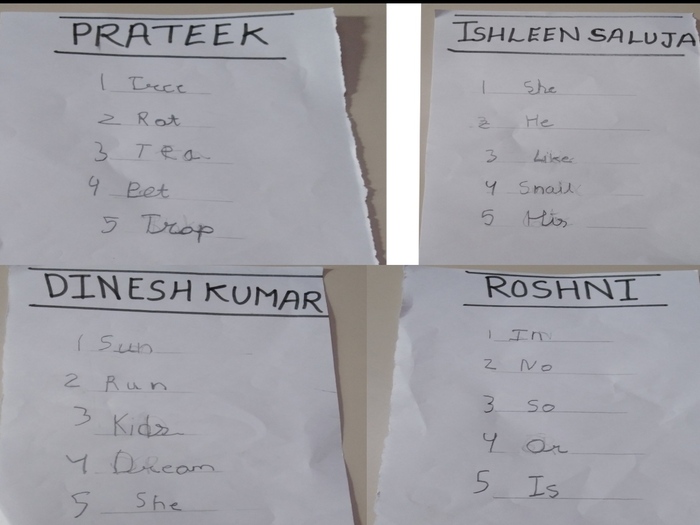 PRATEEK
1 Tree
2 Rat
3 Tea
4 Bet
5 Trap
ISHLEEN SALUJA
1 She
2 He
3 Like
4 Small
5 His
DINESH KUMAR
1 Sun
2 Run
3 Kids
4 Dream
5 She
ROSHNI
1 In
2 No
3 So
4 Or
5 Is